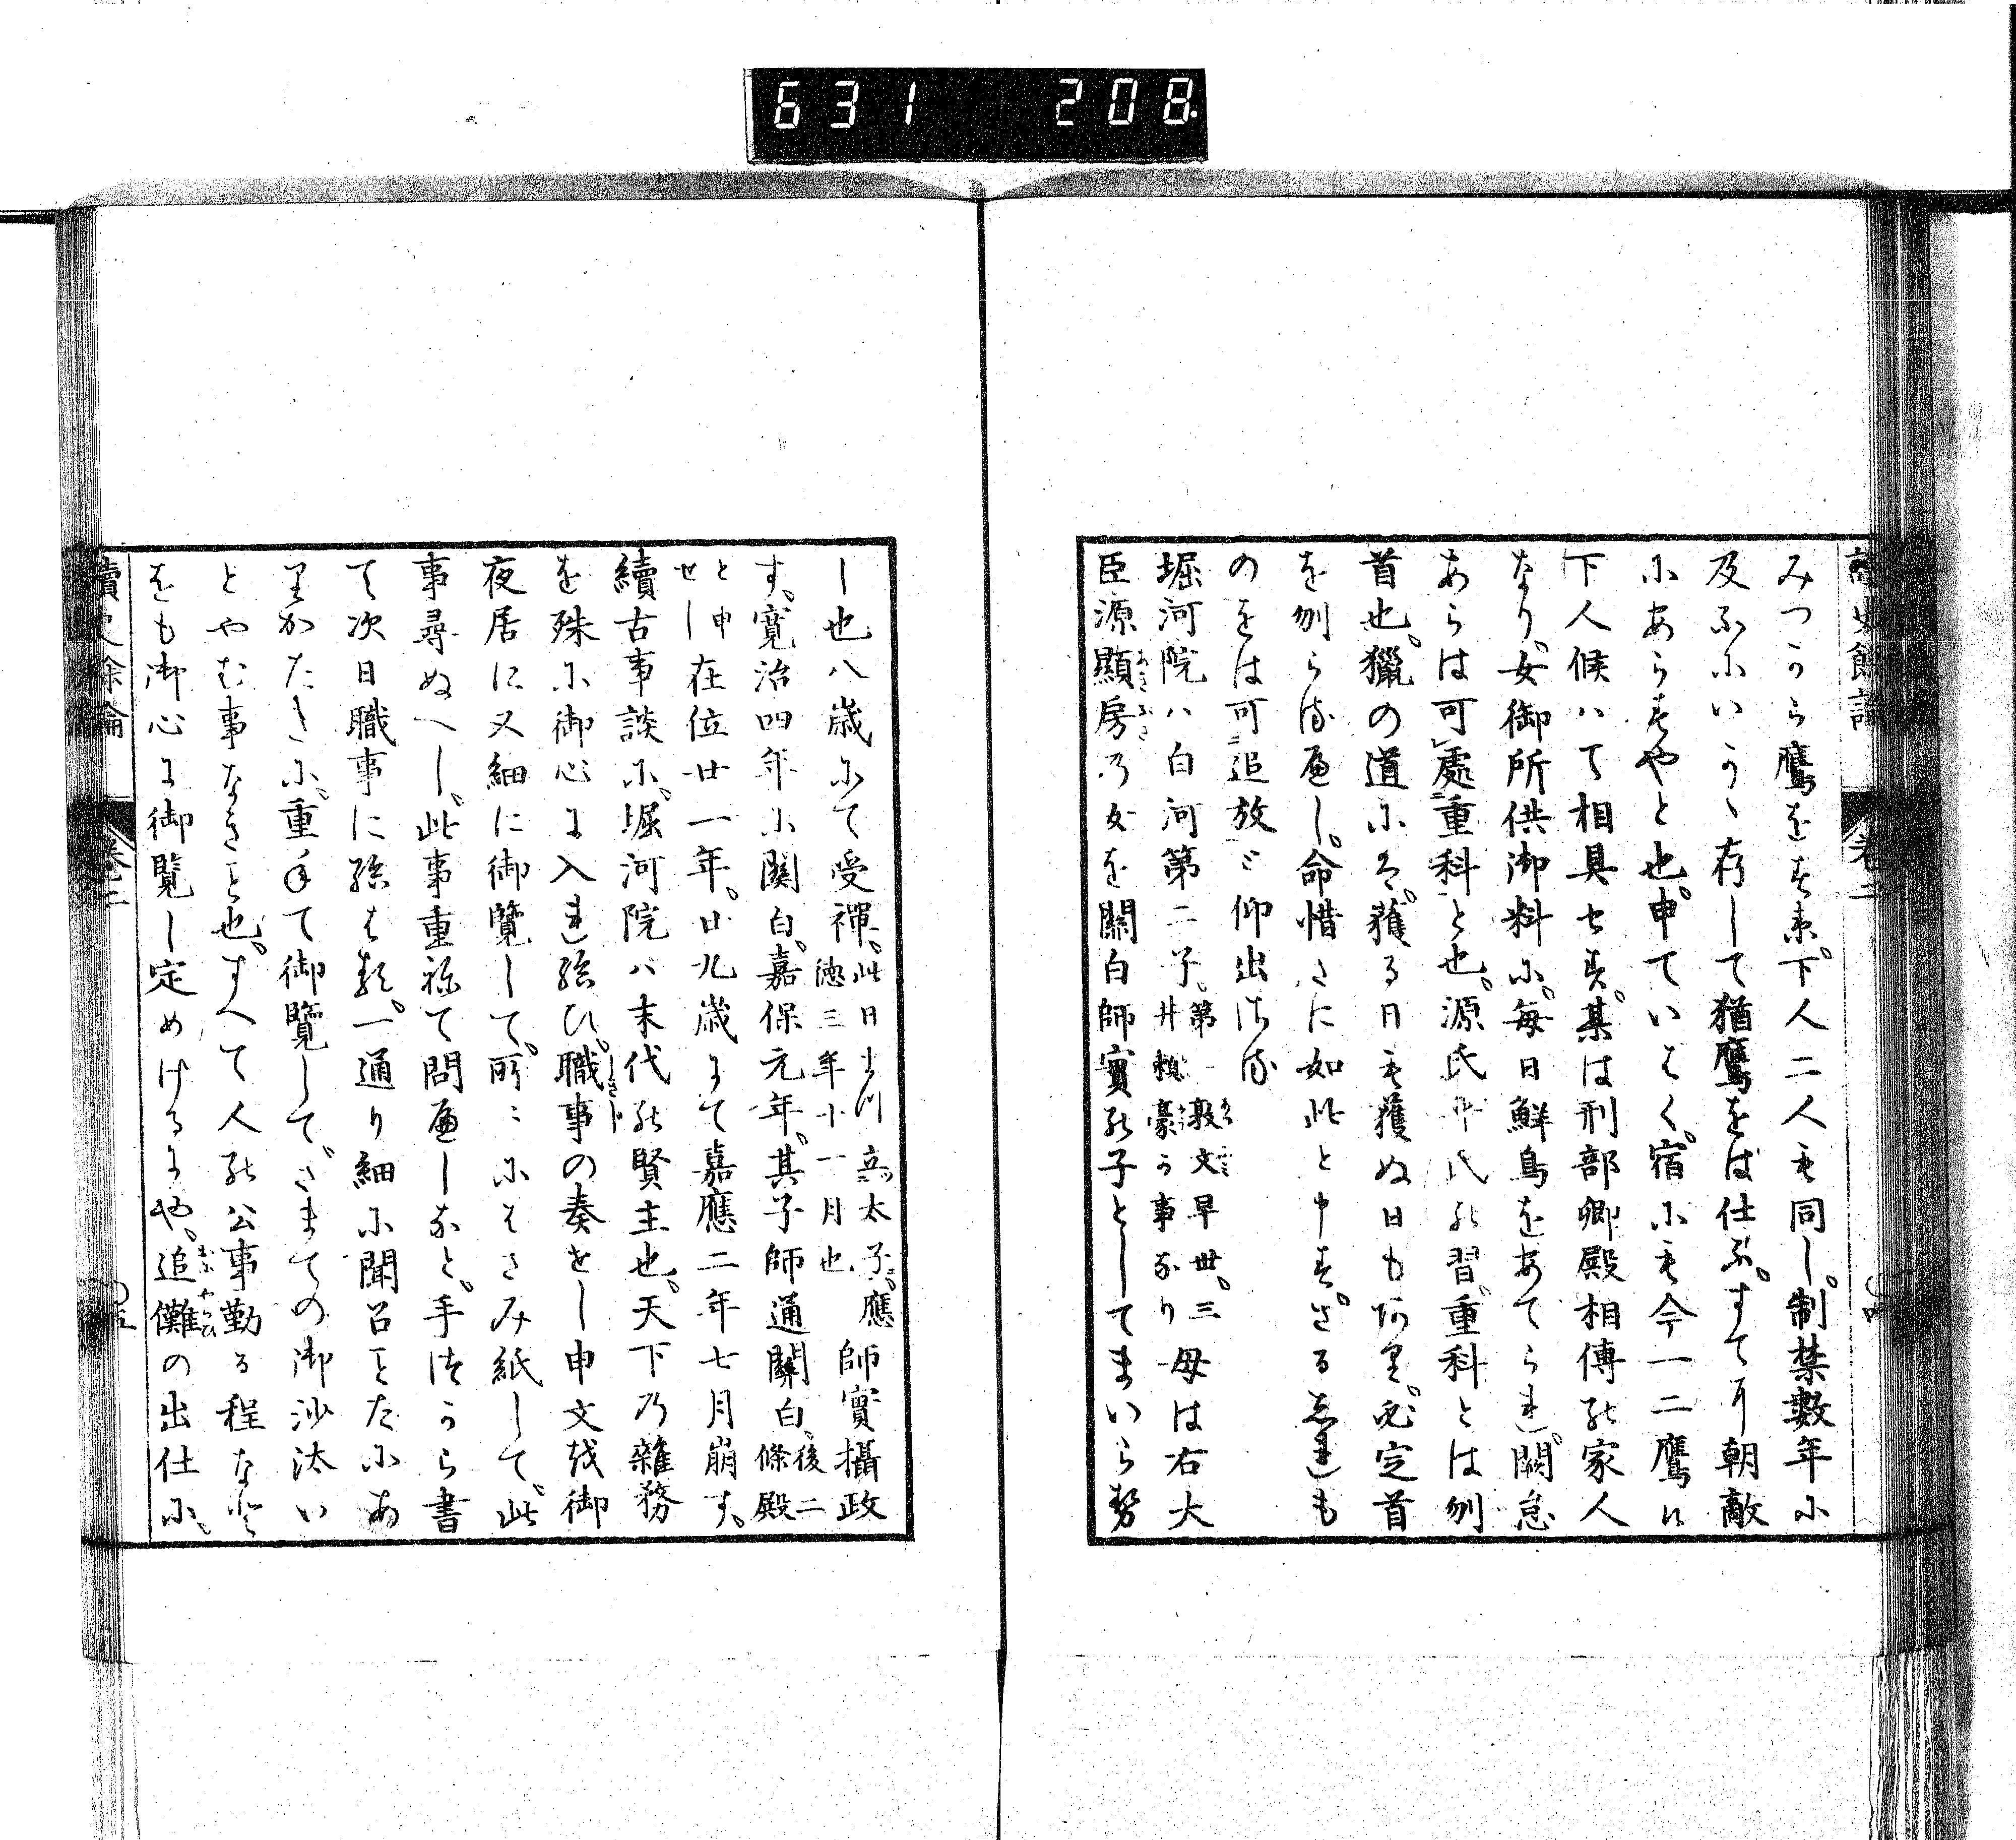 631 208
讀史餘論 卷二
みつから鷹をすゑ下人二人も同し制禁數年に
及ふにいかゝ存して猶鷹をは仕ふすてに朝敵
にあらすやと也申ていはく宿にも今一二鷹は
下人候ハて相具せす某は刑部卿殿相傳の家人
なり女御所供御料に毎日鮮鳥をあてられ闕怠
あらは可處重科と也源氏平氏の習重科とは刎
首也獵の道にて獲る日も獲ぬ日もあり必定首
を刎らるへし命惜さに如此と申すさるしれも
のをは可追放と仰出さる
堀河院ハ白河第二子第一敦文早世三井頼豪か事なり母は右大
臣源顯房の女を關白師實の子としてまいらせ
し也八歳にて受禪此日まつ立太子應徳三年十一月也師實攝政
す寛治四年に關白嘉保元年其子師通關白後二條殿
と申せし在位廿一年廿九歳にて嘉應二年七月崩す
續古事談に堀河院ハ末代の賢主也天下の雜務
を殊に御心に入れ給ひ職事の奏せし申文を御
夜居に又細に御覽して所々にはさみ紙して此
事尋ぬへし此事重ねて問へしなと手つから書
て次日職事に給はる一通り細に聞召ことたにあ
りかたきに重ねて御覽してさまての御沙汰い
とやむ事なきこと也すへて人の公事勤る程なと
をも御心に御覽し定めけるにや追儺の出仕に
讀史餘論 卷二